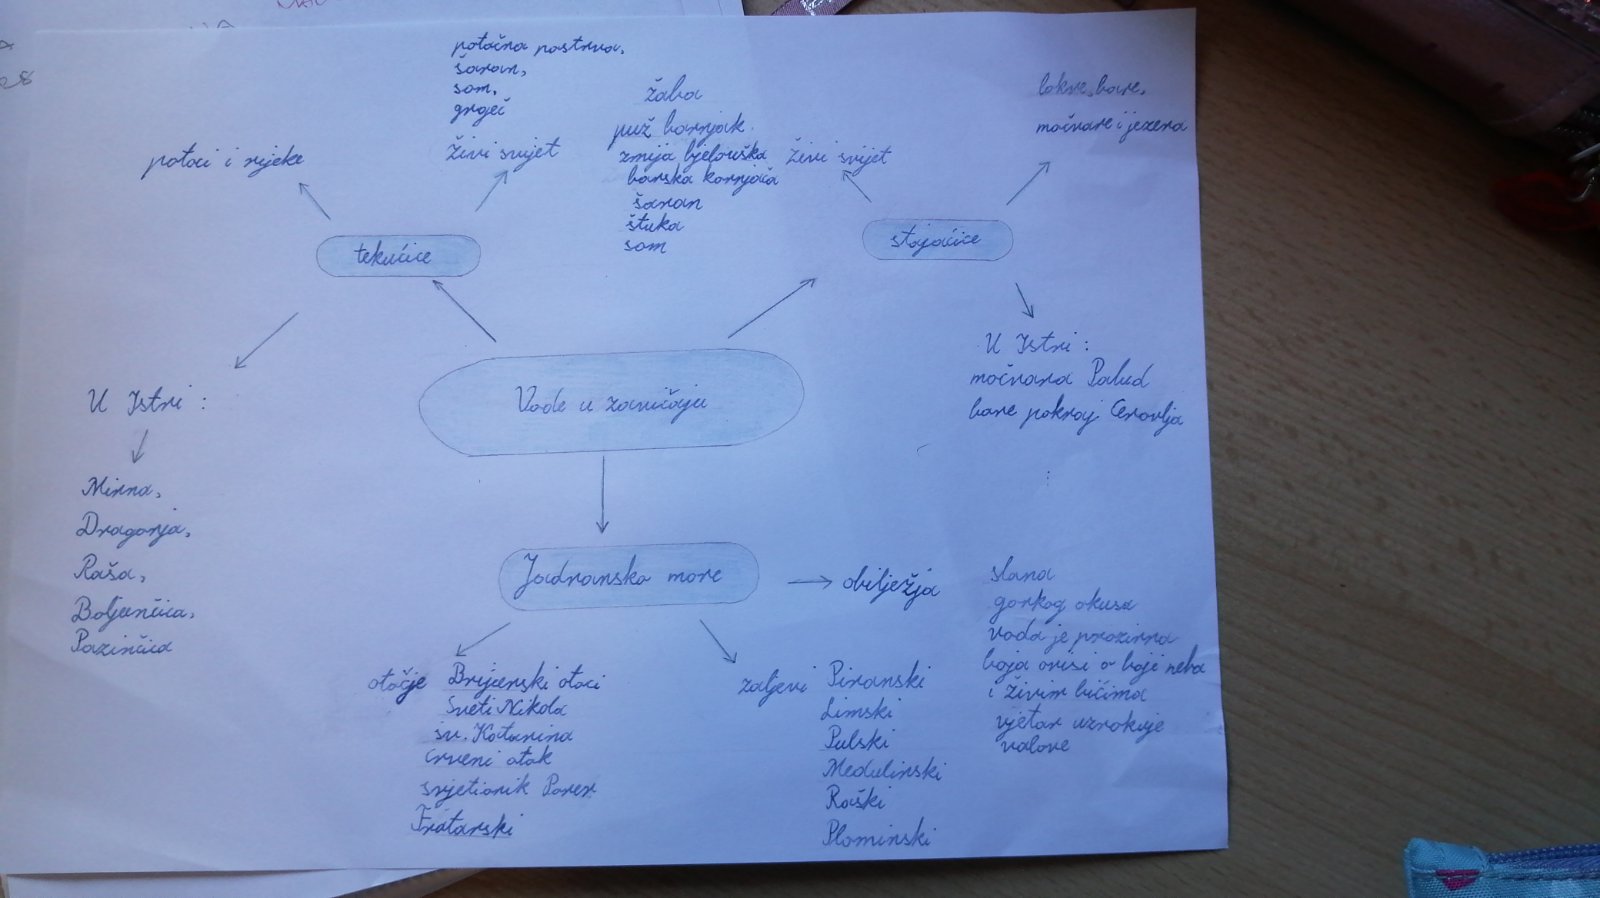 potočna pastrva,
šaran,
som,
grgeč
živi svijet
potoci i rijeke
tekućice
U Istri :
Mirna,
Dragonja,
Raša,
Boljunčica,
Pazinčica
žaba
puž barnjak
zmija bjelouška
barska kornjača
šaran
štuka
som
živi svijet
lokve, bare,
močvare i jezera
stajaćice
U Istri :
močvara Palud
bare pokraj Cerovlja
Vode u zavičaju
Jadransko more
obilježja
slana
gorkog okusa
voda je prozirna
boja ovisi o boji neba
i živim bićima
vjetar uzrokuje
valove
otočje Brijunski otoci
Sveti Nikola
sv. Katarina
crveni otok
svjetionik Porer
Fratarski
zaljevi Piranski
Limski
Pulski
Medulinski
Raški
Plominski